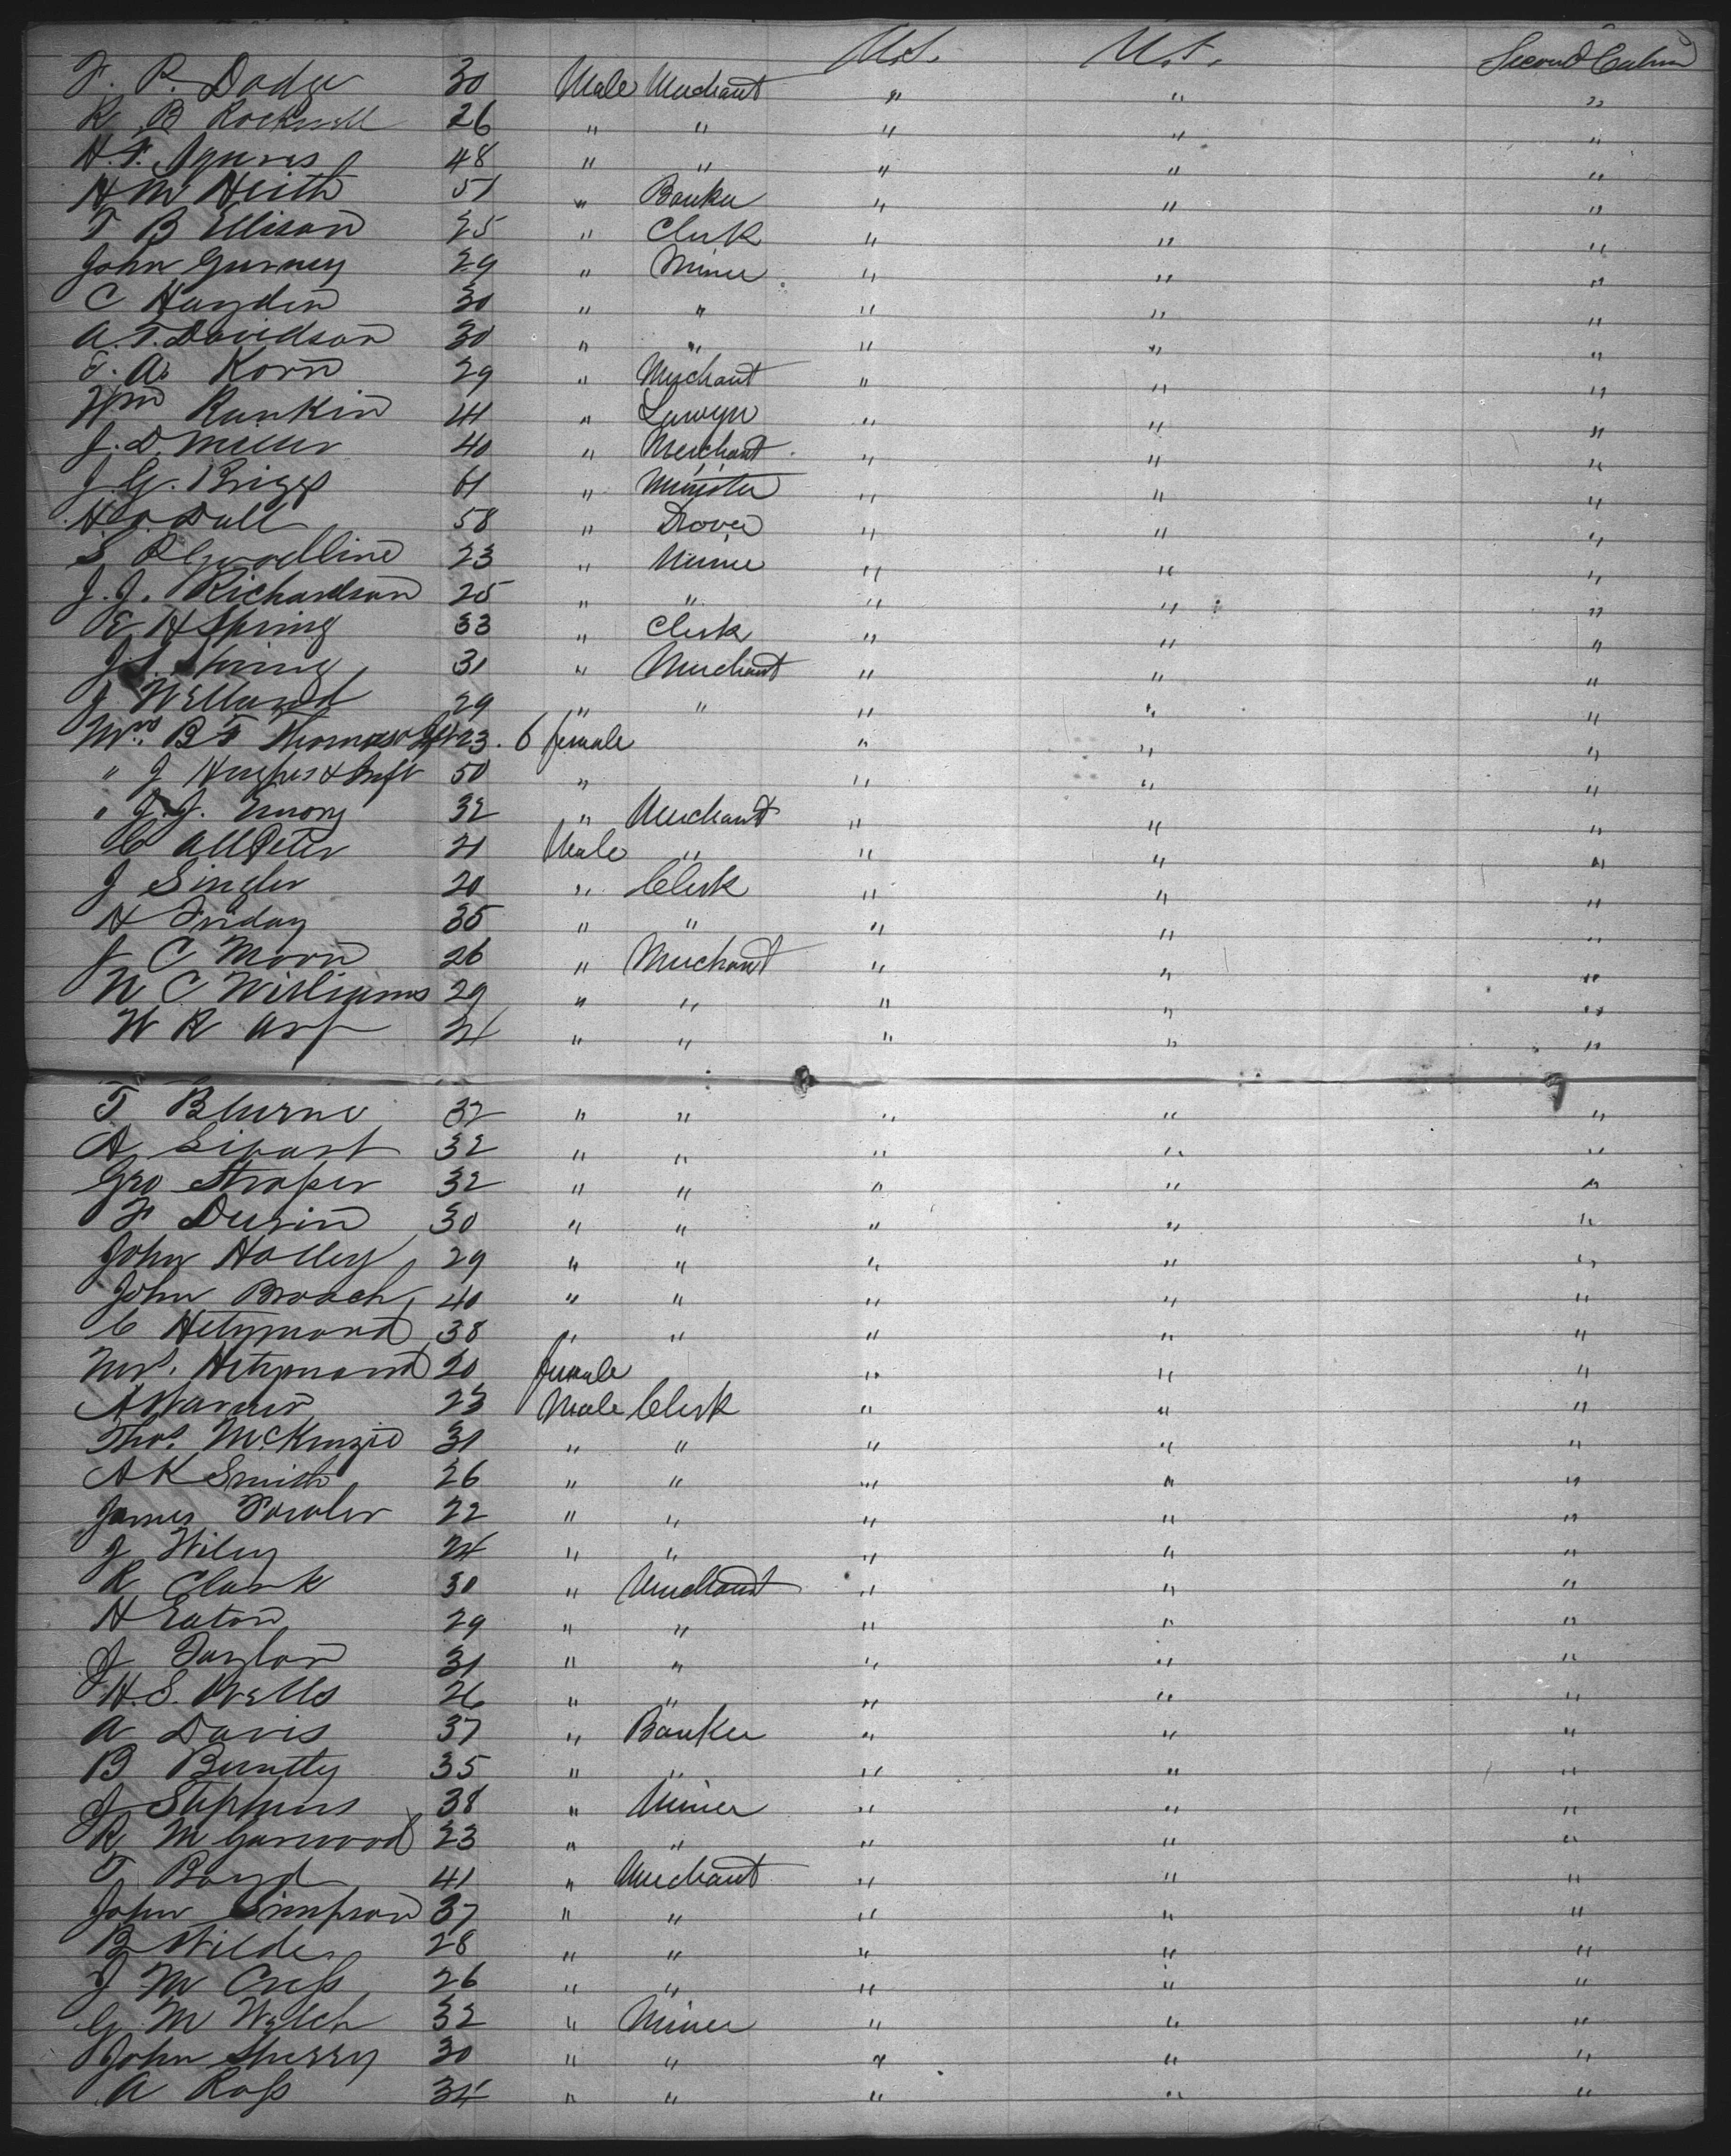 U.S. U.S. Second Cabin
F. P. Dodge 30 Male Merchant " " "
R B Rockwell 26 " " " " "
H. F. 48 " " " " "
H M Heith 51 " Banker " " "
T B Ellison 25 " Clerk " " "
John Gurney 29 " Miner " " "
C Hayden 30 " " " " "
A. T. Davidson 30 " " " " "
T. A. Korn 29 " Merchant " " "
Wm Rankin 41 " Lawyer " " "
J. D. Miller 40 " Merchant " " "
J. G. Briggs 61 " Minister " " "
H. Dall 58 " Drover " " "
S R Goodline 23 " Miner " " "
J. J. Richardson 25 " " " " "
E H Spring 33 " Clerk " " "
J. S. Spring 31 " Merchant " " "
J Welland 29 " " " " "
Mrs. B F Thompson 23. 6 female " " "
" J Hughes & Inft 50 " " " "
" J. J. Emory 32 " Merchant " " "
C 21 Male " " " "
J Singler 20 " Clerk " " "
H Friday 35 " " " " "
J C Moon 26 " Merchant " " "
N C Williams 29 " " " " "
W R Arp 24 " " " " "
T Blurne 32 " " " " "
A 32 " " " " "
Geo Stroper 32 " " " " "
F Durin 30 " " " " "
John Holley 29 " " " " "
John Broach 40 " " " " "
C Hetymond 38 " " " " "
Mrs. Hetymond 20 female " " "
A Warner 23 Male Clerk " " "
Thos. McKenzie 31 " " " " "
A K Smith 26 " " " " "
James Fowler 22 " " " " "
J Wiley 24 " " " " "
R Clark 30 " Merchant " " "
H Eaton 29 " " " " "
J Taylor 31 " " " " "
H. S. Wells 26 " " " " "
A Davis 37 " Banker " " "
B Buntty 35 " " " " "
J Stephens 38 " Miner " " "
R M Garwood 23 " " " " "
T Boyd 41 " Merchant " " "
John Simpson 37 " " " " "
B Wilde 28 " " " " "
J M Cress 26 " " " " "
G M Welch 32 " Miner " " "
John Sherry 30 " " " " "
A Ross 34 " " " " "